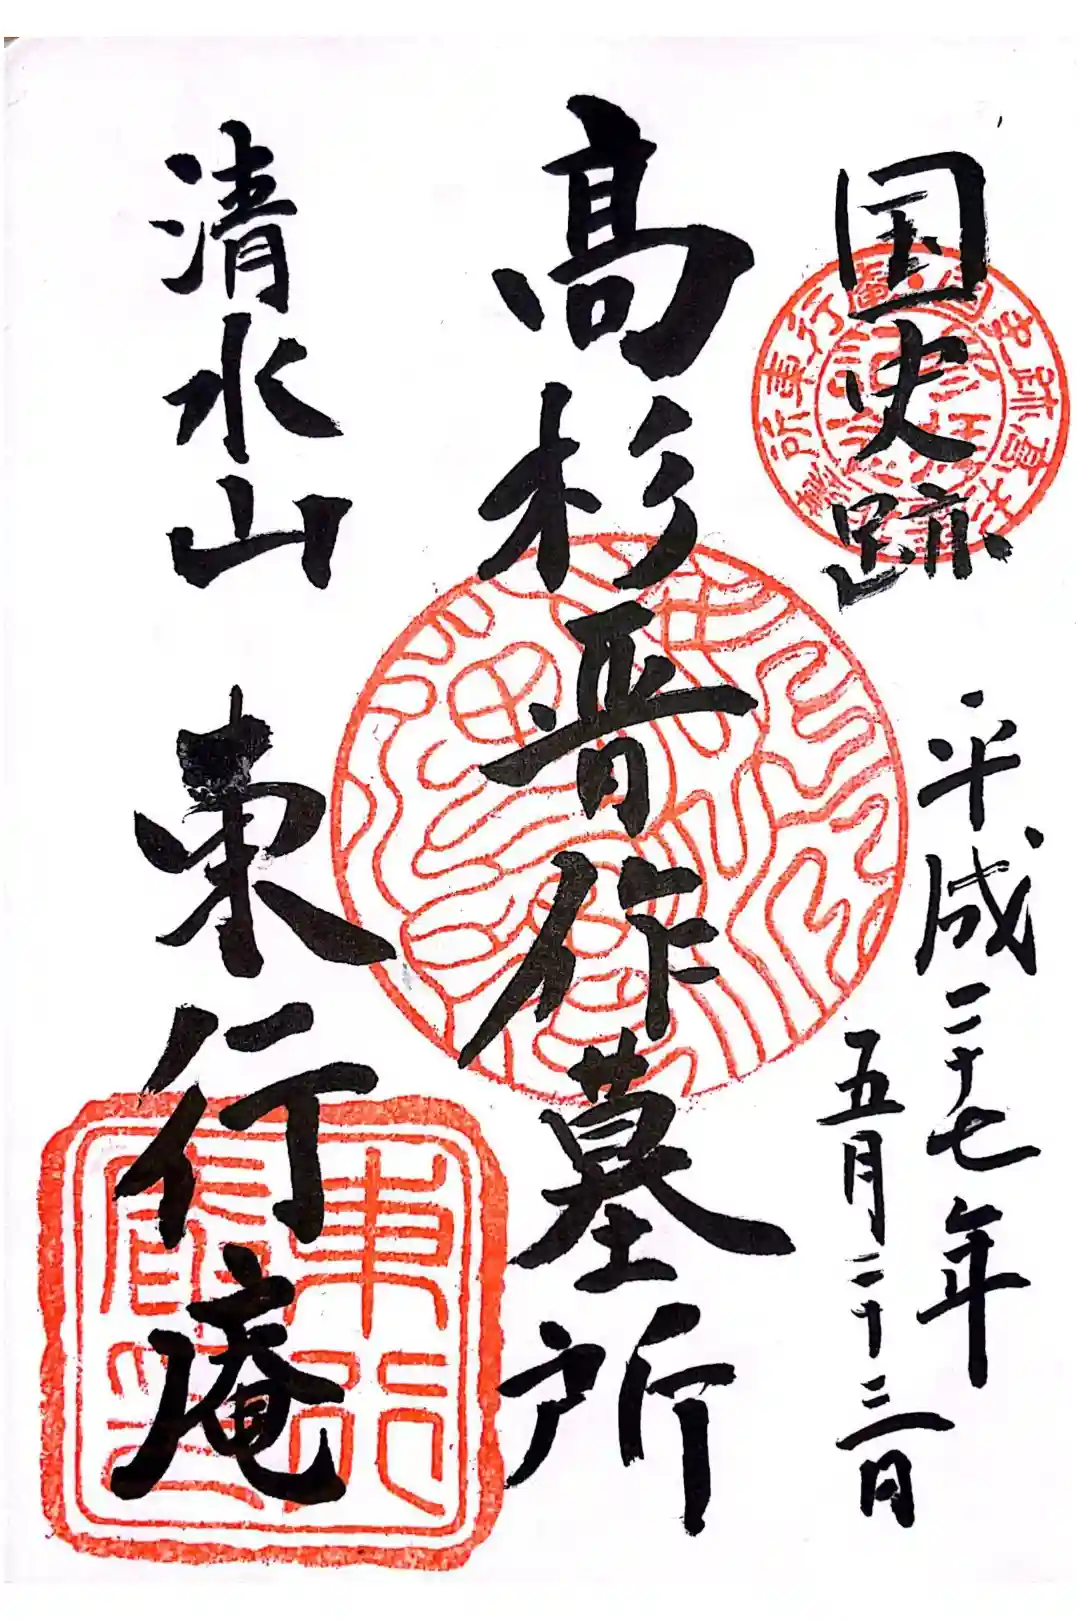 国史跡
平成二十七年
五月二十三日
髙杉晋作墓所
清水山 東行庵
東行庵